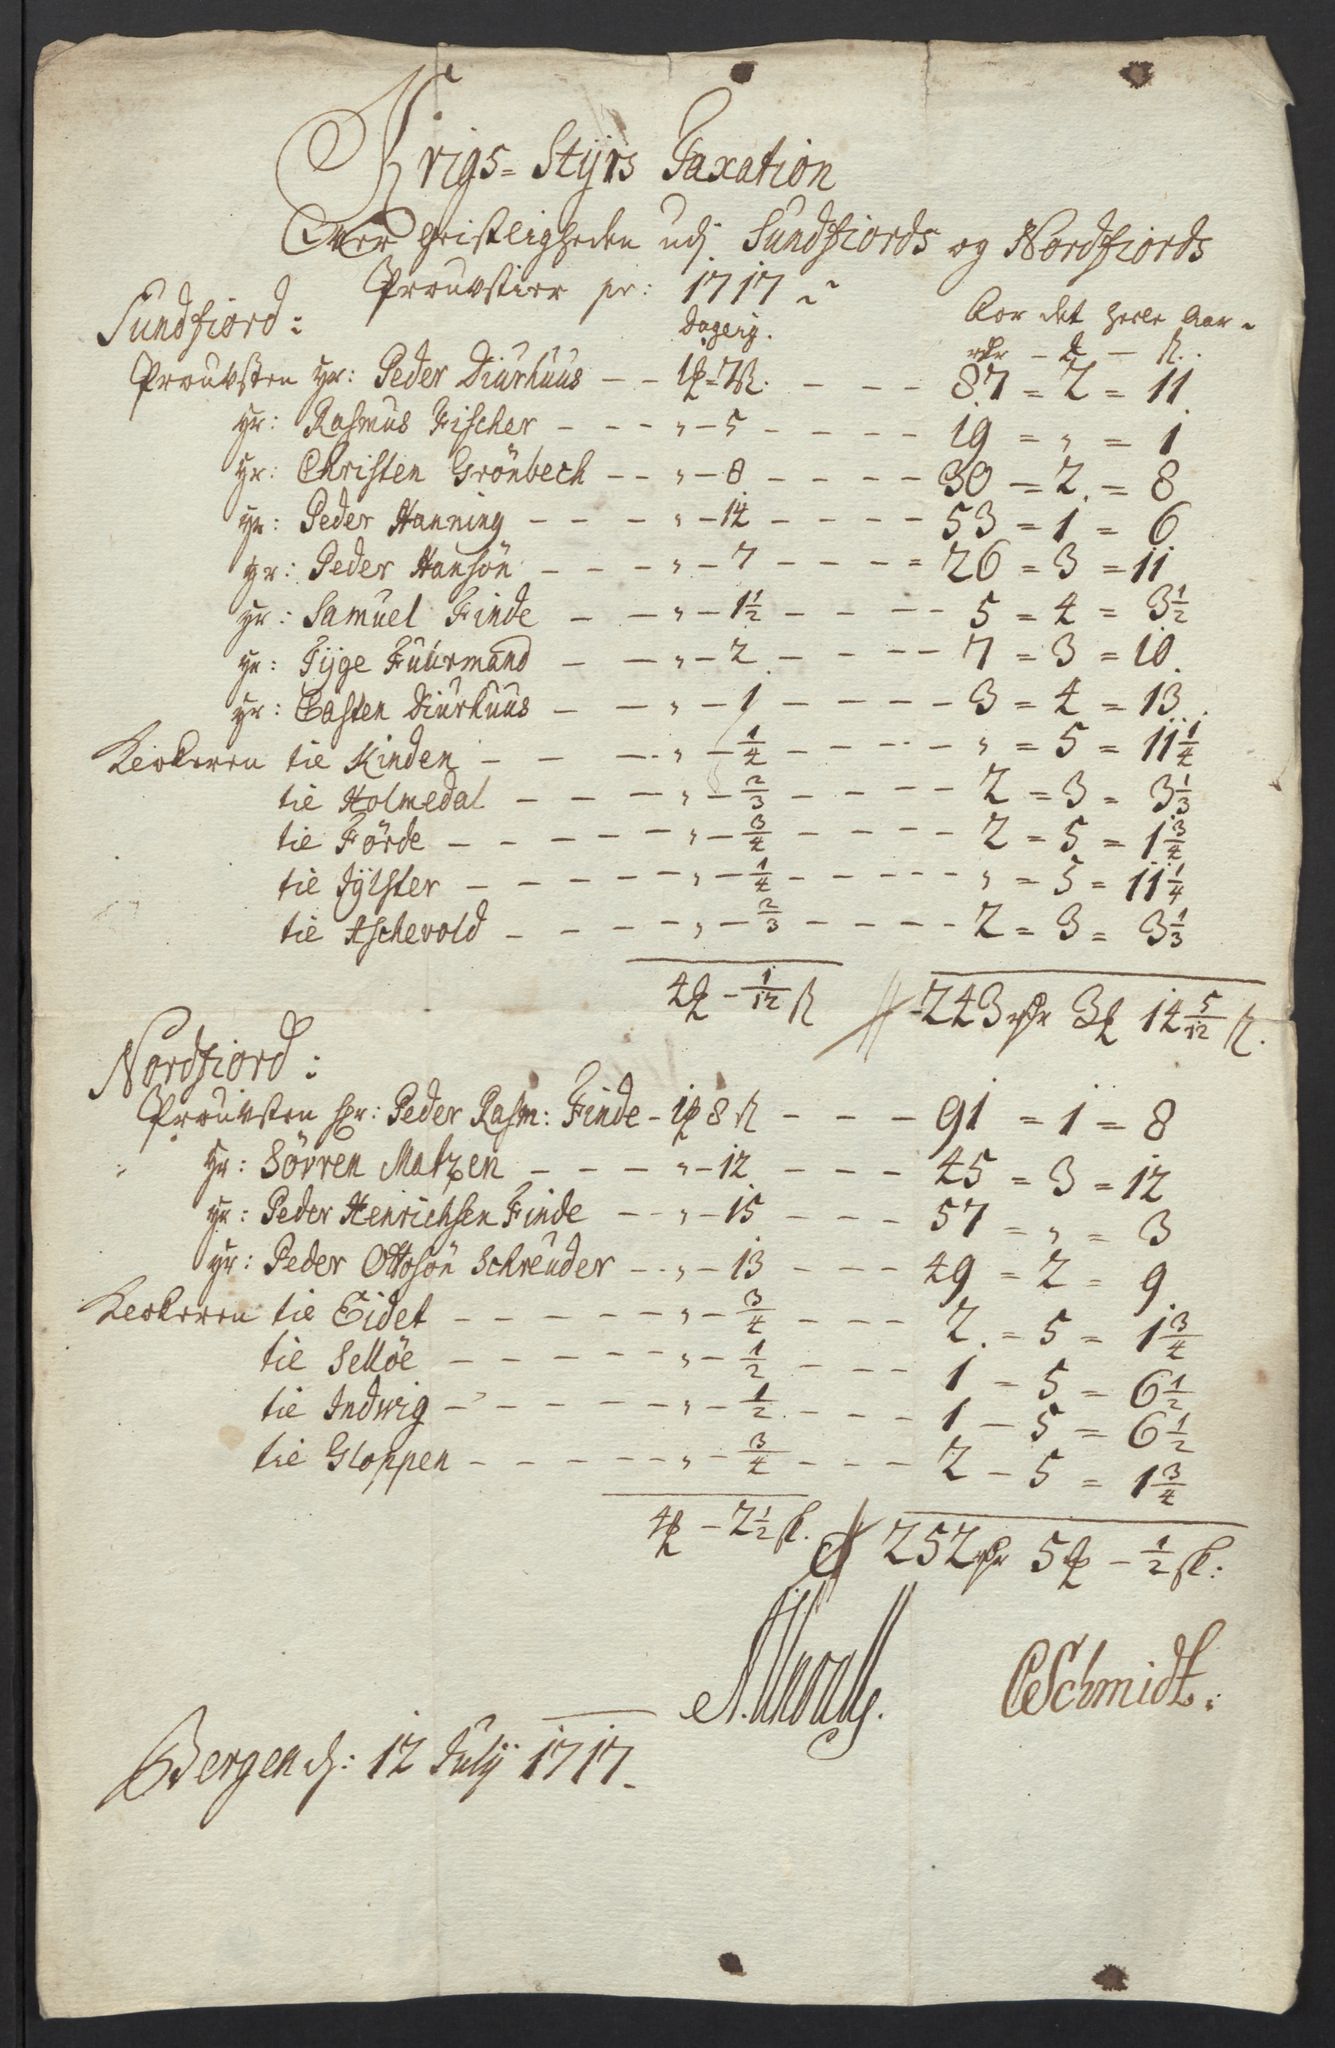 Krigs-Styrs Taxation
Over geistligheden udj Sundfiords og Nordfiords
Proustier pr: 1717
Sundfiord: Daglig. For det heele Aar
rdr - ₰ - ß.
Prousten Hr: Peder Diurhuus - - 1₰ = 7ß. - - - 87 = 2 = 11
Hr: Rasmus Fischer - - - " - 5 - - - - 19 = " = 1
Hr: Christen Grönbech - - " - 8 - - - - 30 = 2 = 8
Hr: Peder Hanning - - - " - 14 - - - - 53 = 1 = 6
Hr: Peder Hansön - - - " - 7 - - - - 26 = 3 = 11
Hr: Samuel Finde - - " - 1½ - - - - 5 = 4 = 3½
Hr: Tyge Fuurmand - - " - 2 - - - - 7 = 3 = 10
Hr: Casten Diurhuus - - " - 1 - - - - 3 = 4 = 13
Klokeren til Kinden - - - " - ¼ - - - - " = 5 = 11¼
til Holmedal - - - - " - ⅔ - - - - 2 = 3 = 3⅓
til Förde - - - - - " - ¾ - - - - 2 = 5 = 1¾
til Jÿlster - - - - - " - ¼ - - - - " = 5 = 11¼
til Aschevold - - - - " - ⅔ - - - - 2 = 3 = 3⅓
4₰ - 1/12 ß 243 rdr 3₰ 14 5/12 ß.
Nordfiord:
Prousten Hr: Peder Rasm: Finde - 1₰ 8 ß - - - 91 = 1 = 8
Hr: Sövren Matzen - - - - " - 12 - - - - 45 = 3 = 12
Hr: Peder Henrichsen Finde - - " - 15 - - - 57 = " = 3
Hr: Peder Ottosön Schreuder - - " - 13 - - - 49 = 2 = 9
Klokeren til Eidet - - - - - " - ¾ - - - 2 = 5 = 1¾
til Sellöe - - - - - " - ½ - - - 1 = 5 = 6½
til Indwig - - - - - " - ½ - - - 1 - 5 = 6½
til Gloppen - - - - - " - ¾ - - - 2 - 5 = 1¾
4₰ - 2½ ß. 252 rdr 5₰ - ½ ß:
CSchmidt.
Bergen d: 12 July 1717.